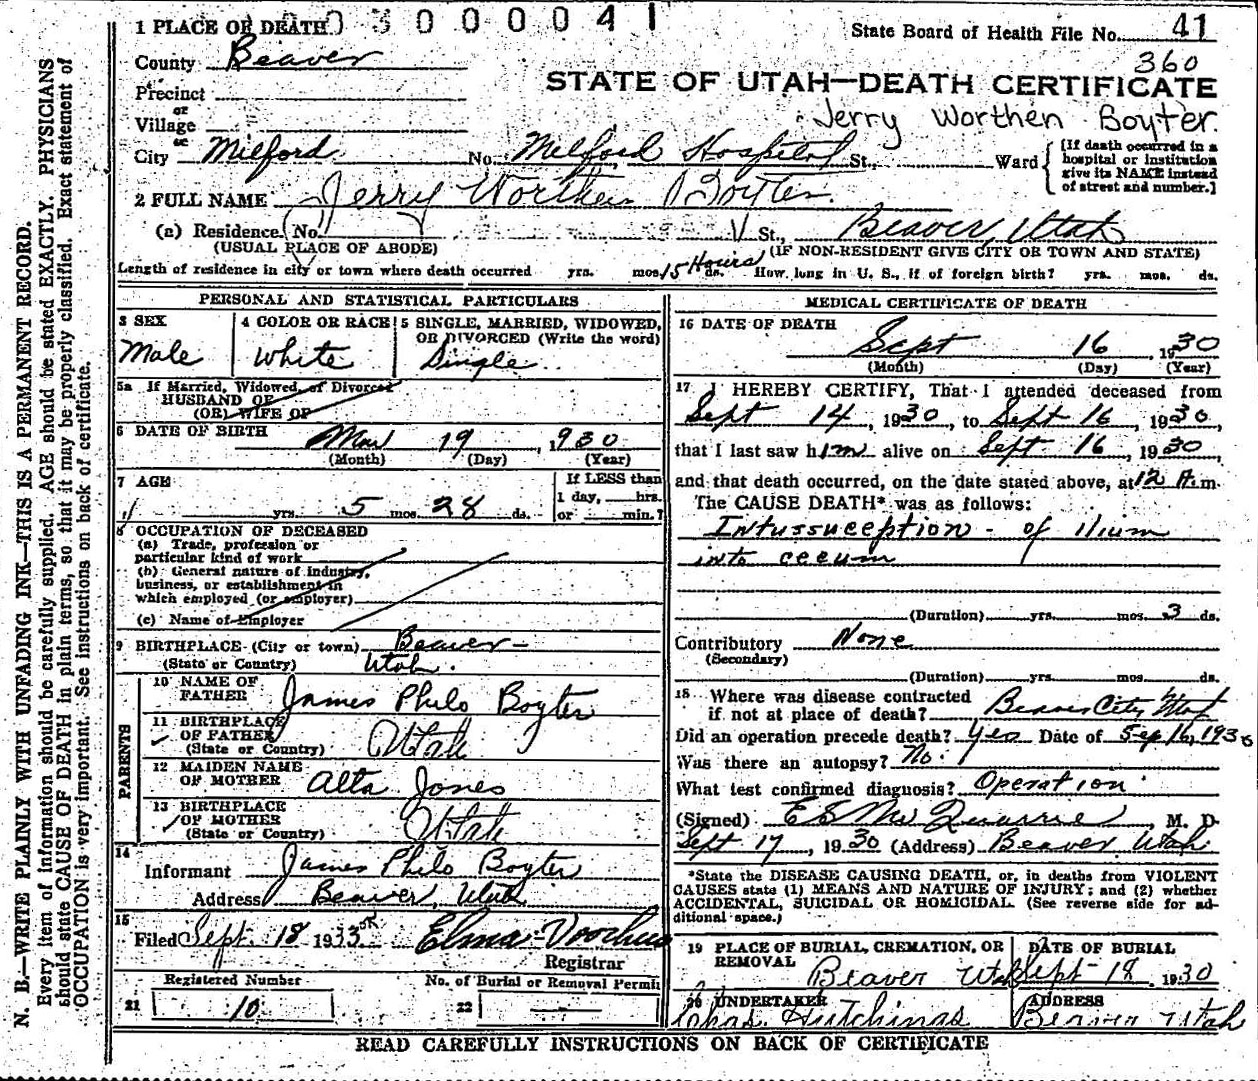 1 PLACE OF DEATH 0 3 0 0 0 0 4 1
State Board of Health File No. 41
360
County Beaver
STATE OF UTAH—DEATH CERTIFICATE
Precinct
or
Village
Jerry Worthen Boyter.
or
City Milford. No. Milford Hospital St., Ward
[If death occurred in a hospital or institution give its NAME instead of street and number.]
2 FULL NAME Jerry Worthen Boyter.
(a) Residence. No. St., Beaver, Utah
(USUAL PLACE OF ABODE) (IF NON-RESIDENT GIVE CITY OR TOWN AND STATE)
Length of residence in city or town where death occurred yrs. mos. 15 Hours ds. How long in U. S., if of foreign birth? yrs. mos. ds.
PERSONAL AND STATISTICAL PARTICULARS
3 SEX 4 COLOR OR RACE 5 SINGLE, MARRIED, WIDOWED, OR DIVORCED (Write the word)
Male White Single
5a If Married, Widowed, or Divorced
HUSBAND OF
(OR) WIFE OF
6 DATE OF BIRTH Mar 19 1930
(Month) (Day) (Year)
7 AGE If LESS than
1 day, hrs.
yrs. 5 mos. 28 ds. or min.?
8 OCCUPATION OF DECEASED
(a) Trade, profession or
particular kind of work
(b) General nature of industry,
business, or establishment in
which employed (or employer)
(c) Name of Employer
9 BIRTHPLACE (City or town) Beaver
(State or Country) Utah.
PARENTS
10 NAME OF
FATHER James Philo Boyter
11 BIRTHPLACE
OF FATHER
(State or Country) Utah
12 MAIDEN NAME
OF MOTHER Alta Jones
13 BIRTHPLACE
OF MOTHER
(State or Country) Utah
14 Informant James Philo Boyter
Address Beaver, Utah
15 Filed Sept. 18 193 Elma Voorhees
Registrar
Registered Number No. of Burial or Removal Permit
21 10 22
MEDICAL CERTIFICATE OF DEATH
16 DATE OF DEATH
Sept 16, 1930
(Month) (Day) (Year)
17 I HEREBY CERTIFY, That I attended deceased from
Sept 14, 1930, to Sept 16, 1930,
that I last saw him alive on Sept 16, 1930
and that death occurred, on the date stated above, at 12 A.m.
The CAUSE DEATH* was as follows:
Intussuception - of Ilium
into ceeum
(Duration) yrs. mos. 3 ds.
Contributory None
(Secondary)
(Duration) yrs. mos. ds.
18 Where was disease contracted
if not at place of death? Beaver City Utah
Did an operation precede death? Yes Date of Sep 16, 1930
Was there an autopsy? No.
What test confirmed diagnosis? Operation
(Signed) M. D.
Sept 17, 1930 (Address) Beaver Utah
*State the DISEASE CAUSING DEATH, or, in deaths from VIOLENT
CAUSES state (1) MEANS AND NATURE OF INJURY; and (2) whether
ACCIDENTAL, SUICIDAL OR HOMICIDAL. (See reverse side for ad-
ditional space.)
19 PLACE OF BURIAL, CREMATION, OR REMOVAL DATE OF BURIAL
Beaver Utah Sept 18 1930
20 UNDERTAKER ADDRESS
Chas. Hutchings Beaver Utah
READ CAREFULLY INSTRUCTIONS ON BACK OF CERTIFICATE
N. B.—WRITE PLAINLY WITH UNFADING INK—THIS IS A PERMANENT RECORD.
Every item of information should be carefully supplied. AGE should be stated EXACTLY. PHYSICIANS
should state CAUSE OF DEATH in plain terms, so that it may be properly classified. Exact statement of
OCCUPATION is very important. See instructions on back of certificate.